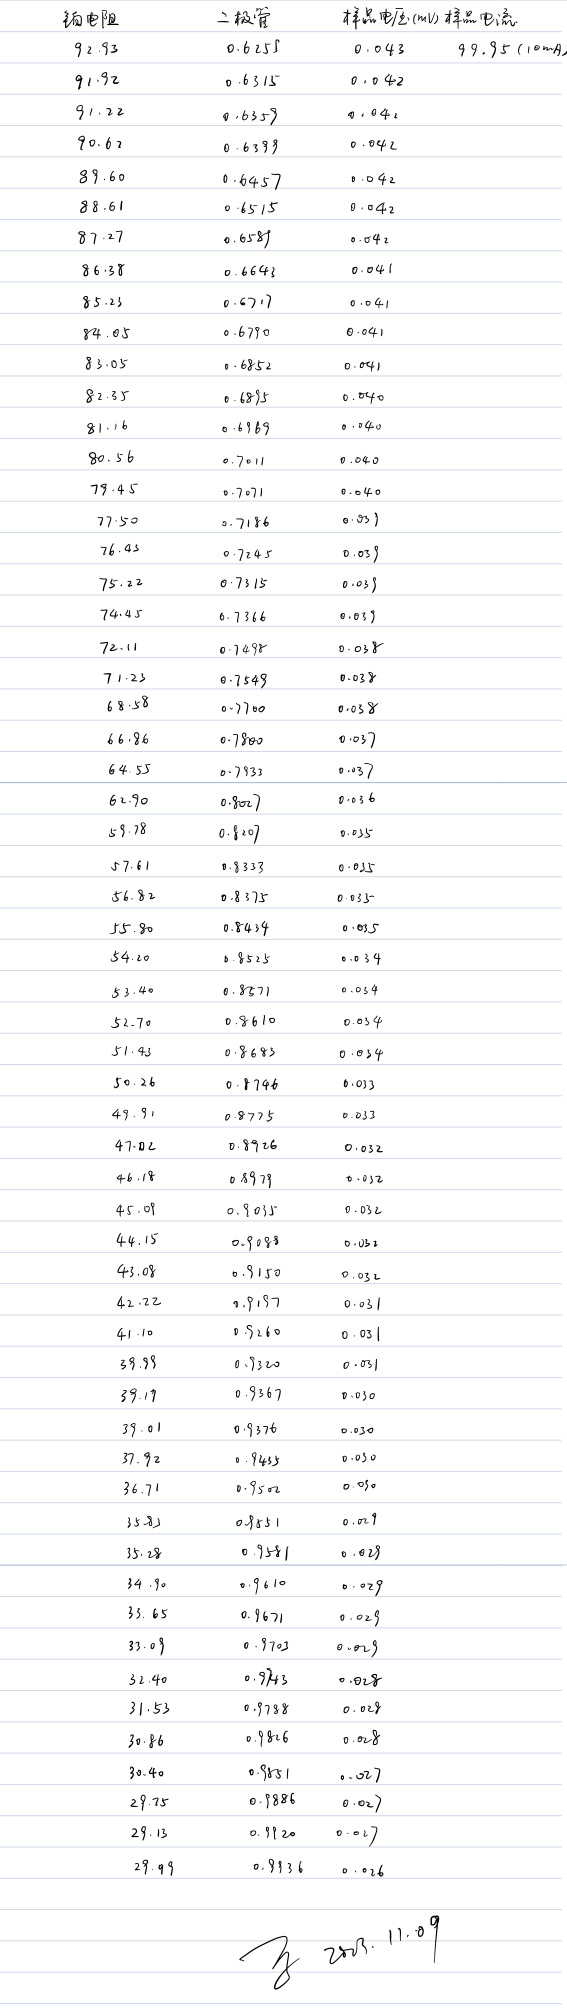 铂电阻 二极管 样品电压(mV) 样品电流
92.93 0.6255 0.043 99.95 (10mA)
91.92 0.6315 0.042
91.22 0.6359 0.042
90.62 0.6399 0.042
89.60 0.6457 0.042
88.61 0.6515 0.042
87.27 0.6589 0.042
86.38 0.6643 0.041
85.23 0.6717 0.041
84.05 0.6790 0.041
83.05 0.6852 0.041
82.35 0.6895 0.040
81.16 0.6969 0.040
80.56 0.7011 0.040
79.45 0.7071 0.040
77.50 0.7186 0.039
76.43 0.7245 0.039
75.22 0.7315 0.039
74.45 0.7366 0.039
72.11 0.7498 0.038
71.23 0.7549 0.038
68.58 0.7700 0.038
66.86 0.7800 0.037
64.55 0.7933 0.037
62.90 0.8027 0.036
59.78 0.8207 0.035
57.61 0.8333 0.035
56.82 0.8375 0.035
55.80 0.8434 0.035
54.20 0.8525 0.034
53.40 0.8571 0.034
52.70 0.8610 0.034
51.43 0.8683 0.034
50.26 0.8746 0.033
49.91 0.8775 0.033
47.02 0.8926 0.032
46.18 0.8979 0.032
45.09 0.9035 0.032
44.15 0.9088 0.032
43.08 0.9150 0.032
42.22 0.9197 0.031
41.10 0.9260 0.031
39.99 0.9320 0.031
39.19 0.9367 0.030
39.01 0.9376 0.030
37.92 0.9435 0.030
36.71 0.9502 0.030
35.83 0.9551 0.029
35.28 0.9581 0.029
34.90 0.9610 0.029
33.65 0.9671 0.029
33.09 0.9703 0.029
32.40 0.9743 0.028
31.53 0.9788 0.028
30.86 0.9826 0.028
30.40 0.9851 0.027
29.75 0.9886 0.027
29.13 0.9920 0.027
29.99 0.9936 0.026
11.09